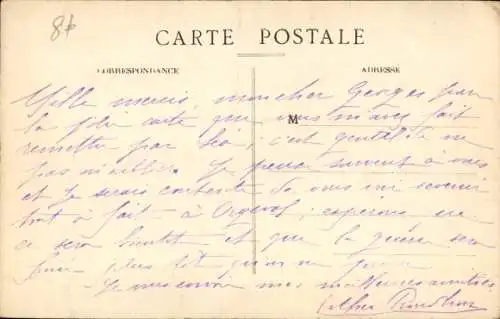 8+
CARTE POSTALE
CORRESPONDANCE
ADRESSE
M
Mille mercis, mon cher Georges pour
la jolie carte que vous m'avez fait
remettre par ; c'est gentil de ne
pas m'oublier. Je pense souvent à vous
et je serais contente de vous revenir
tout à fait - à Orgeval ; espérons que
ce sera bientôt et que la guerre sera
finie plus tôt qu'on ne pense
- Je vous envoie mes meilleures amitiés